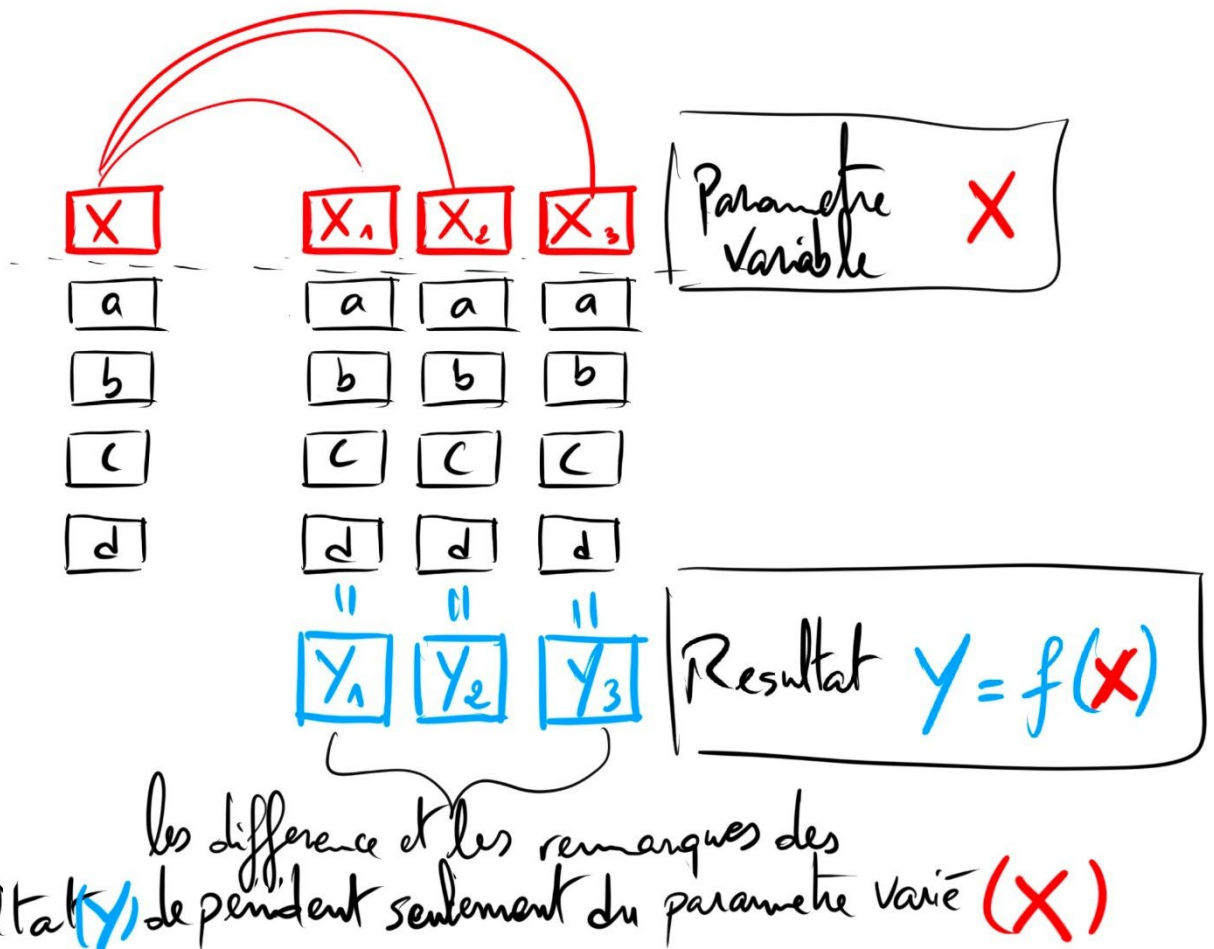 X X₁ X₂ X₃
Parametre X
Variable
a a a a
b b b b
c c c c
d d d d
= = =
Y₁ Y₂ Y₃
Resultat Y = f(X)
les difference et les remarques des
ltat (Y) dependent seulement du parametre varié (X)